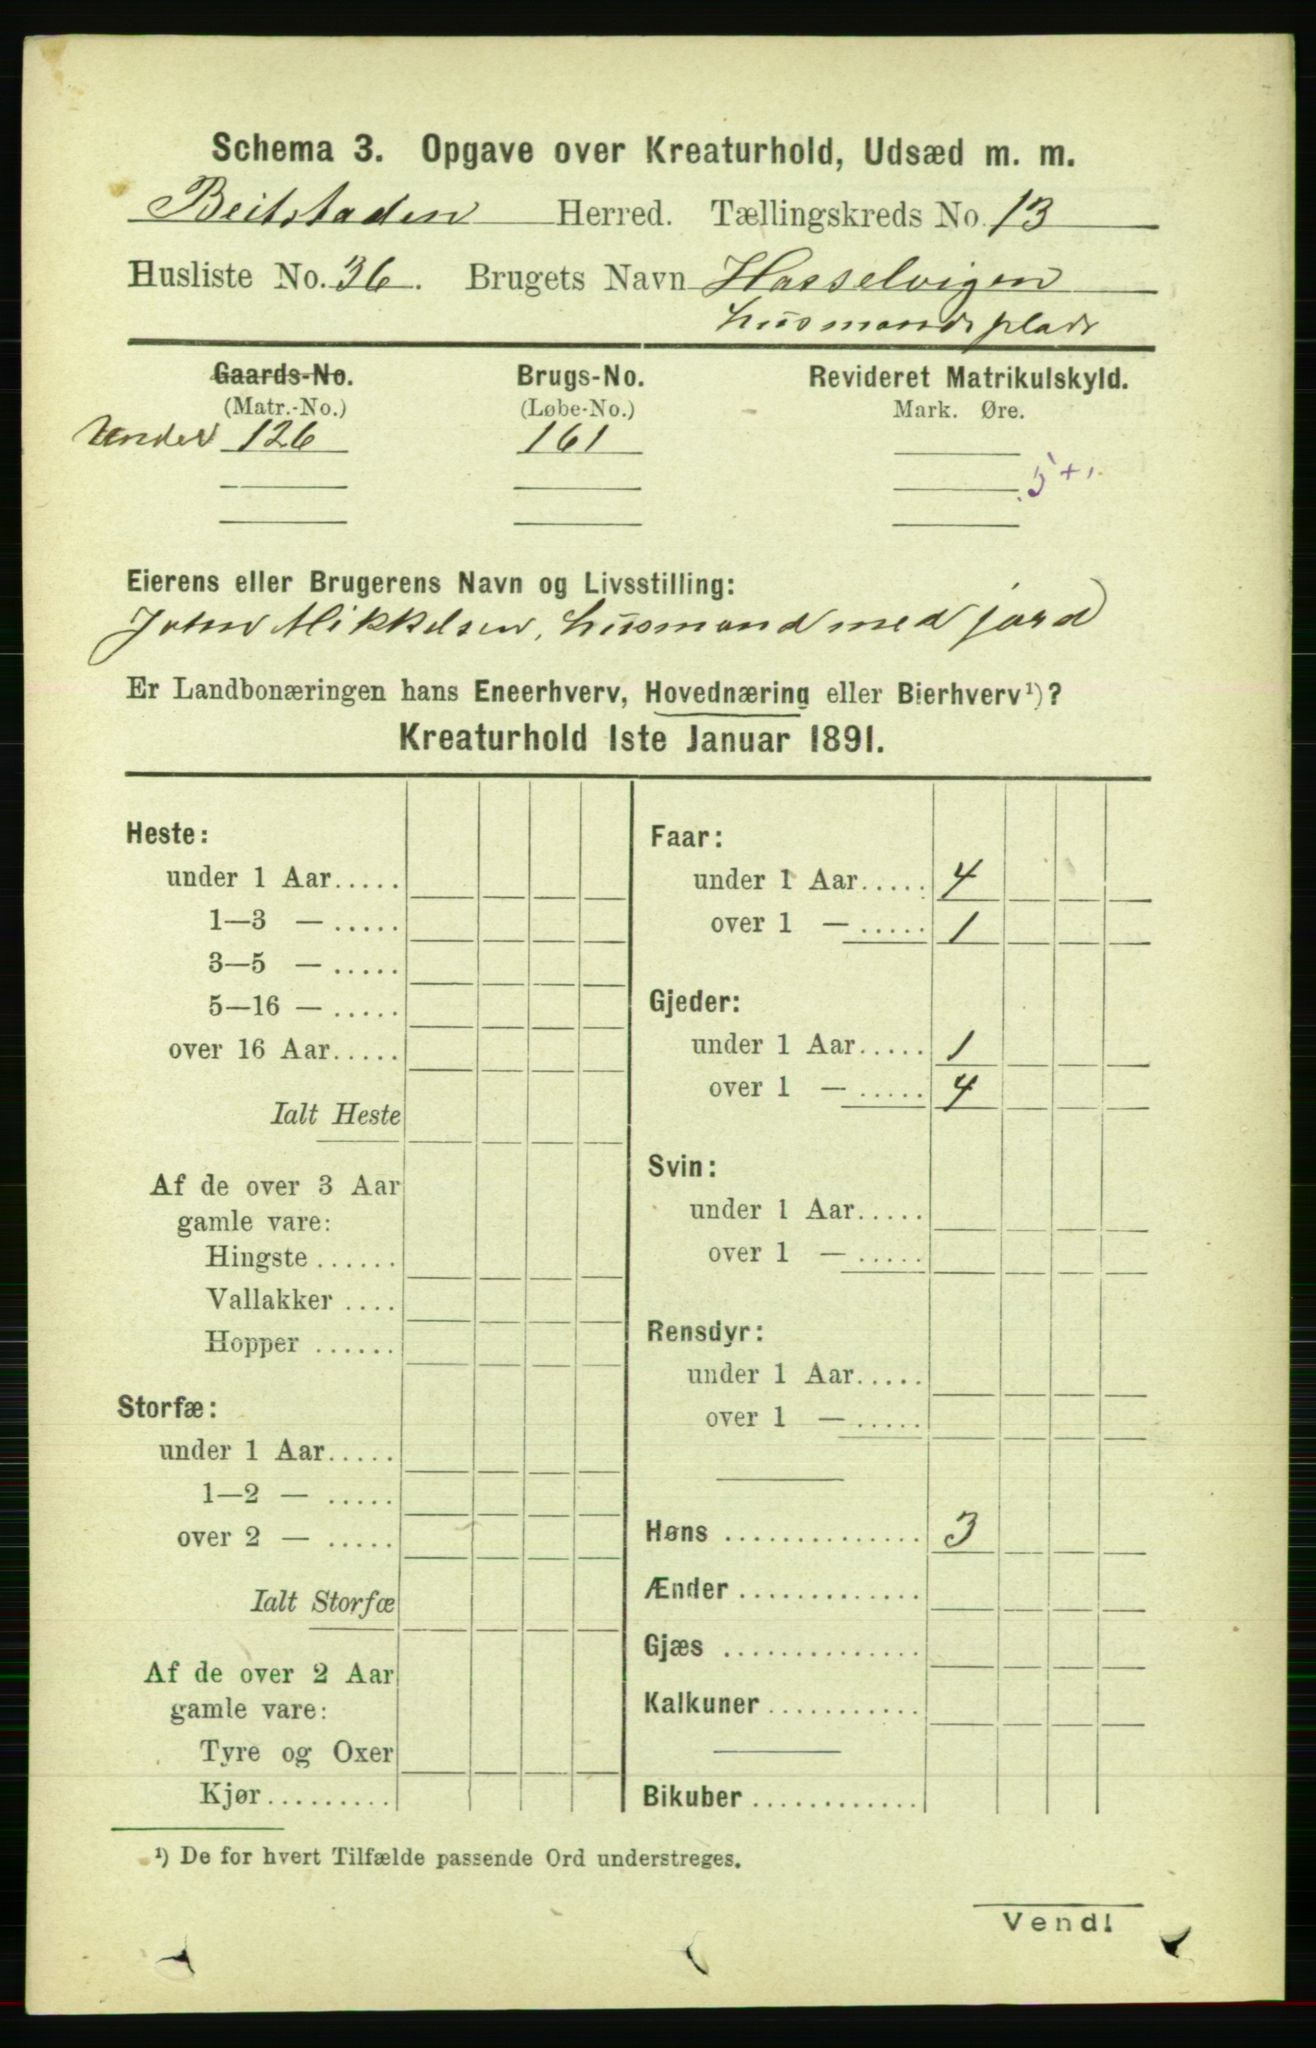 Schema 3. Opgave over Kreaturhold, Udsæd m. m.
Beitstaden Herred. Tællingskreds No. 13
Husliste No. 36. Brugets Navn Hasselvigen
husmandsplads
Gaards-No. Brugs-No. Revideret Matrikulskyld.
(Matr.-No.) (Løbe-No.) Mark. Øre.
Under 126 161
5 +
Eierens eller Brugerens Navn og Livsstilling:
John Mikkelsen, husmand med jord
Er Landbonæringen hans Eneerhverv, Hovednæring eller Bierhverv¹)?
Kreaturhold 1ste Januar 1891.
Heste:
under 1 Aar.....
1—3 — .....
3—5 — .....
5—16 — .....
over 16 Aar.....
Ialt Heste
Af de over 3 Aar
gamle vare:
Hingste ......
Vallakker ....
Hopper ......
Storfæ:
under 1 Aar.....
1—2 — .....
over 2 — .....
Ialt Storfæ
Af de over 2 Aar
gamle vare:
Tyre og Oxer
Kjør.........
Faar:
under 1 Aar..... 4
over 1 — ..... 1
Gjeder:
under 1 Aar..... 1
over 1 — ..... 4
Svin:
under 1 Aar.....
over 1 — .....
Rensdyr:
under 1 Aar.....
over 1 — .....
Høns .............. 3
Ænder .............
Gjæs ..............
Kalkuner ...........
Bikuber ............
¹) De for hvert Tilfælde passende Ord understreges.
Vend!